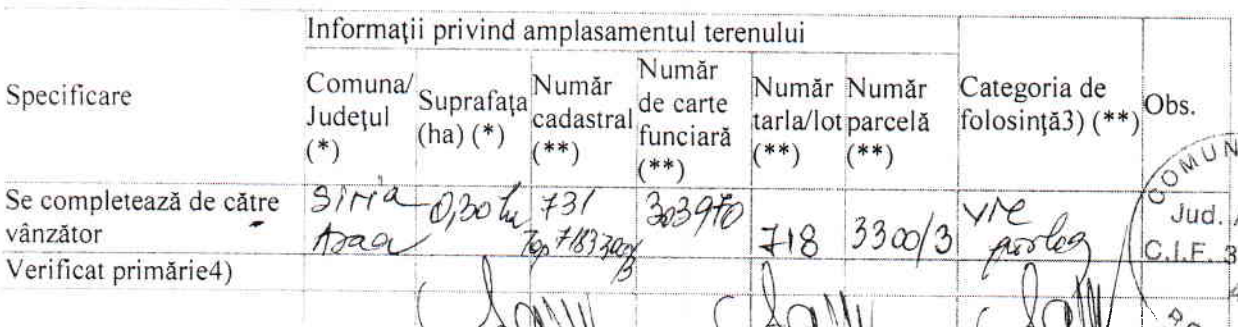 Informaţii privind amplasamentul terenului
Specificare
Comuna/
Judeţul
(*)
Suprafaţa
(ha) (*)
Număr
cadastral
(**)
Număr
de carte
funciară
(**)
Număr
tarla/lot
(**)
Număr
parcelă
(**)
Categoria de
folosinţă3) (**)
Obs.
Se completează de către
vânzător
Siria
Arad
0,30 ha
731
Top 718
303970
718
3300/3
vie
Verificat primărie4)
COMUN
Jud.
C.I.F. 3